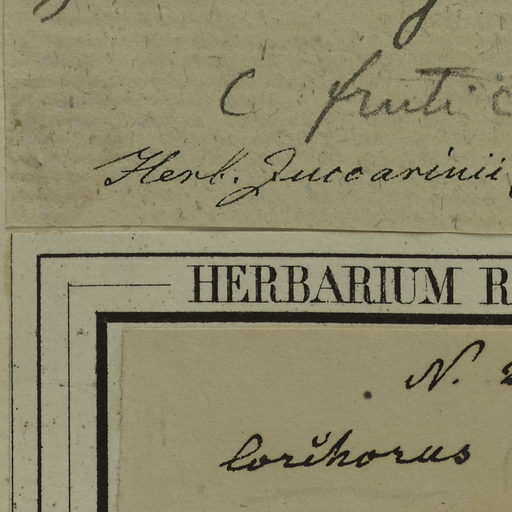 C fruti
Herb. Zuccarinii
HERBARIUM R
N. 2
Corchorus